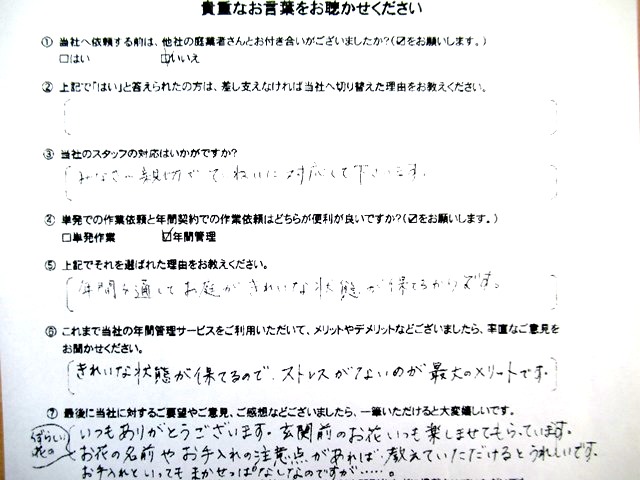 貴重なお言葉をお聴かせください
① 当社へ依頼する前は、他社の庭業者さんとお付き合いがございましたか?(☑をお願いします。)
□はい ☑いいえ
② 上記で「はい」と答えられた方は、差し支えなければ当社へ切り替えた理由をお教えください。
③ 当社のスタッフの対応はいかがですか?
みなさん親切でていねいに対応して下さいます。
④ 単発での作業依頼と年間契約での作業依頼はどちらが便利が良いですか?(☑をお願いします。)
□単発作業 ☑年間管理
⑤ 上記でそれを選ばれた理由をお教えください。
年間を通してお庭がきれいな状態が保てるからです。
⑥ これまで当社の年間管理サービスをご利用いただいて、メリットやデメリットなどございましたら、率直なご意見を
お聞かせください。
きれいな状態が保てるので、ストレスがないのが最大のメリットです。
⑦ 最後に当社に対するご要望やご意見、ご感想などございましたら、一筆いただけると大変嬉しいです。
いつもありがとうございます。玄関前のお花いつも楽しませてもらっています。
めずらしい
花の
お花の名前やお手入れの注意点があれば、教えていただけるとうれしいです。
お手入れといってもまかせっぱなしなのですが……。